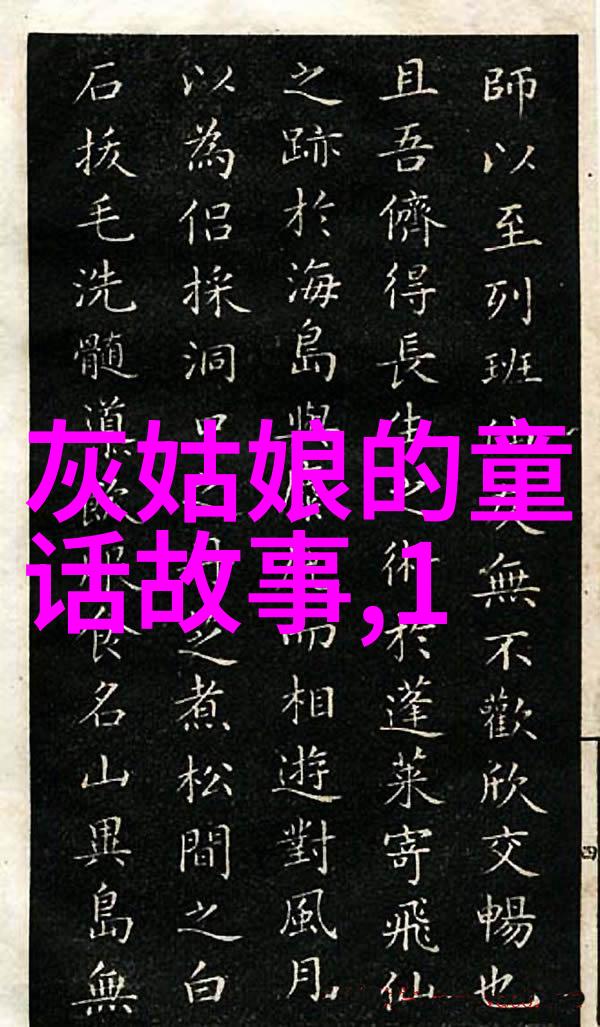 灰姑娘的童
话故事,1
師以至列班無不歡欣交暢也
且吾儕得長生之術於蓬萊寄飛仙
之跡於海島與而相遊對風月
以為侶採洞口之之煮松間之白
石拔毛洗髓飲食名山異島無
四